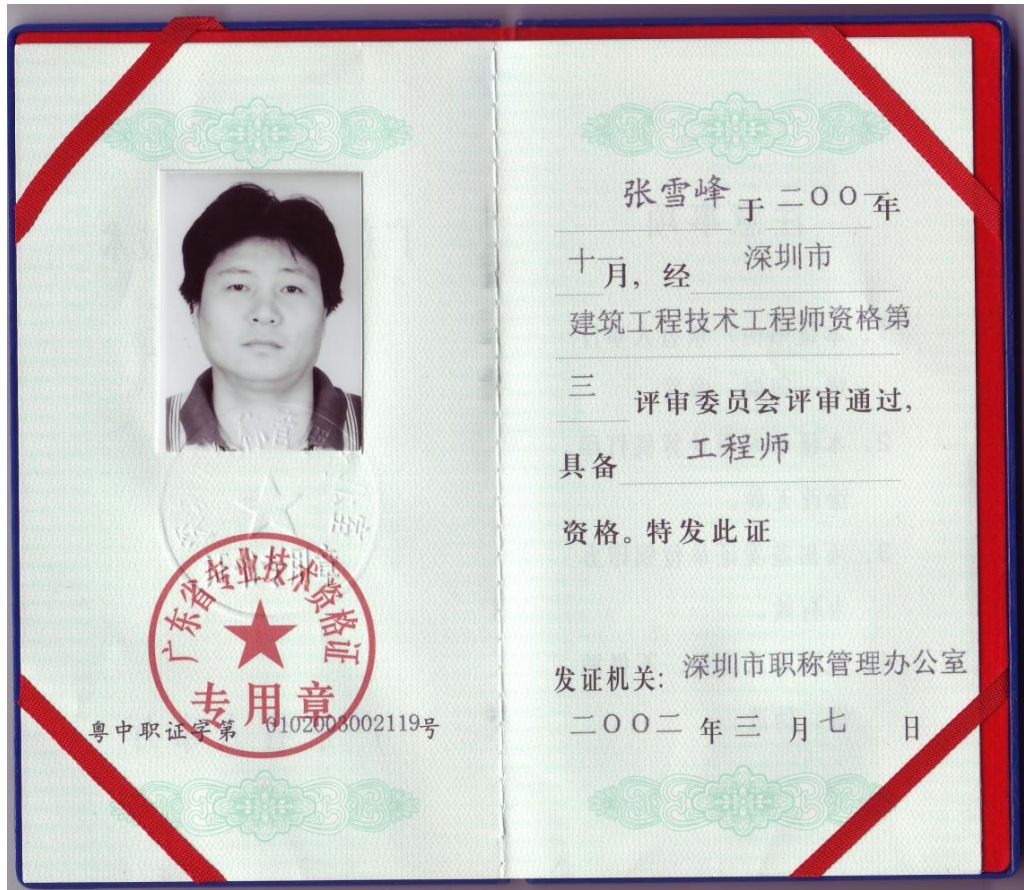 广东省专业技术资格证
专用章
粤中职证字第 0102003002119号
张雪峰 于 二〇〇一年
十一月，经 深圳市
建筑工程技术工程师资格第
三 评审委员会评审通过，
具备 工程师
资格。特发此证
发证机关：深圳市职称管理办公室
二〇〇二 年 三 月 七 日